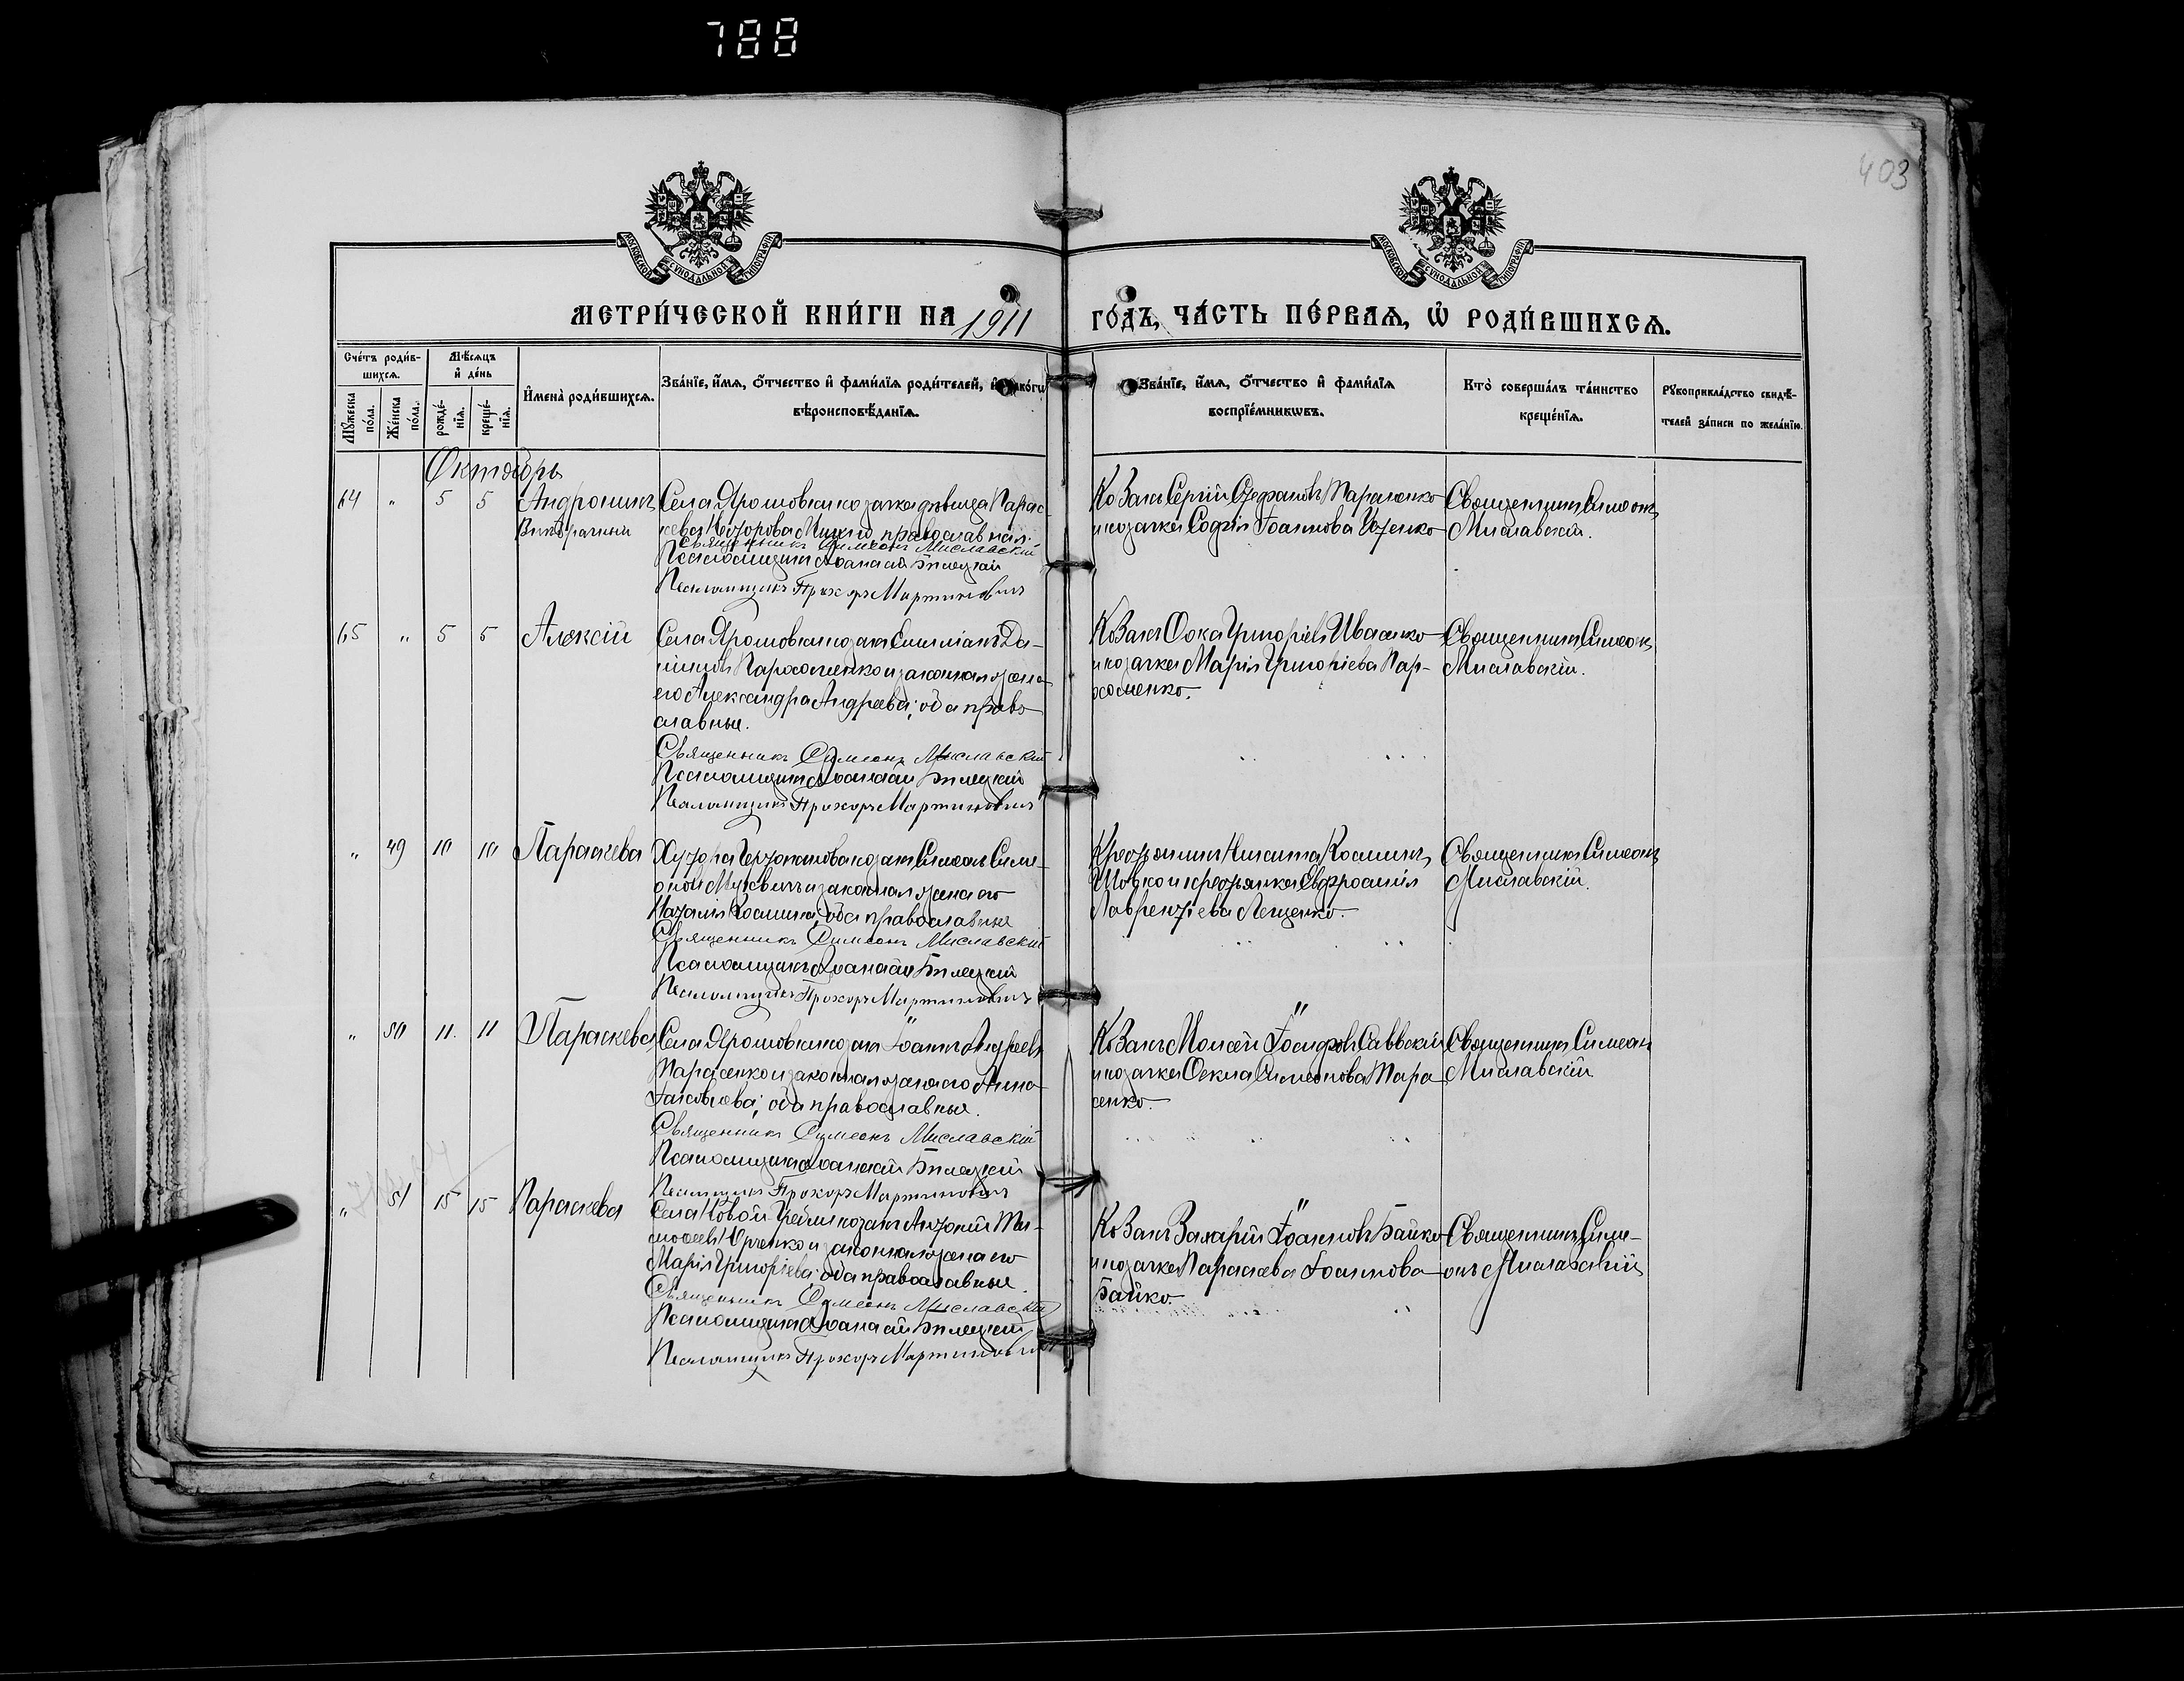 788
403
МОСКОВСКОЙ СУНОДАЛЬНОЙ ТИПОГРАФІИ
МОСКОВСКОЙ СУНОДАЛЬНОЙ ТИПОГРАФІИ
МЕТРИ́ЧЕСКОЙ КНИ́ГИ НА 1911 ГО́ДЪ, ЧА́СТЬ ПЕ́РВАѦ, Ѡ҆ РОДИ́ВШИХСѦ.
Сче́тъ роди́в-
шихсѧ.
Мꙋжеска по́ла.
Же́нска по́ла.
Мѣ́сѧцъ
и҆ де́нь
рожде́-
нїѧ.
креще́-
нїѧ.
И҆мена̀ роди́вшихсѧ.
Зва́нїе, и҆́мѧ, ѻ҆́тчество и҆ фами́лїѧ роди́телей, и҆ како́гѡ
вѣроисповѣ́данїѧ.
Зва́нїе, и҆́мѧ, ѻ҆́тчество и҆ фами́лїѧ
воспрїе́мникѡвъ.
Кто̀ соверша́лъ та́инство
креще́нїѧ.
Рꙋкоприкла́дство свидѣ́-
телей за́писи по жела́нїю.
Октябрь
64 " 5 5 Андроникъ
Внѣбрачный
Села Ярошовки козачка дѣвица Парас-
кева православная.
Священникъ Симеонъ Миславскій
Псаломщикъ Аѳанасій Билецкій
Псаломщикъ Прохоръ Мартиновичъ
Козакъ Сергій Стефановъ
и козачка Софія Іоаннова
Священникъ Симеонъ
Миславскій.
65 " 5 5 Алексій
Села Ярошовки козакъ Да-
ніиловъ Пархоменко и законная жена
его Александра Андреева; оба право-
славные.
Священникъ Симеонъ Миславскій
Псаломщикъ Аѳанасій Билецкій
Псаломщикъ Прохоръ Мартиновичъ
Козакъ Фока Григоріевъ Иваненко
и козачка Марія Григоріева Пар-
хоменко.
Священникъ Симеонъ
Миславскій.
" 49 10 10 Параскева
Хутора козакъ Симеонъ Симе-
оновъ и законная жена его
Наталія Космина; оба православные
Священникъ Симеонъ Миславскій
Псаломщикъ Аѳанасій Билецкій
Псаломщикъ Прохоръ Мартиновичъ
Крестьянинъ Никита Косминъ
Шовко и крестьянка Евфросинія
Лаврентіева Лещенко.
Священникъ Симеонъ
Миславскій.
" 50 11. 11 Параскева
Села Ярошовки козакъ Іоаннъ Андреевъ
Тарасенко и законная жена его Анна
Іаковлева; оба православные.
Священникъ Симеонъ Миславскій
Псаломщикъ Аѳанасій Билецкій
Псаломщикъ Прохоръ Мартиновичъ
Козакъ Моисей Іосифовъ Саввскій
и козачка Ѳекла Симеонова Тара-
сенко.
Священникъ Симеонъ
Миславскій
" 51 15 15 Параскева
Села Новой Гребли козакъ Антоній Ти-
моѳеевъ Юрченко и законная жена его
Марія Григоріева; оба православные.
Священникъ Симеонъ Миславскій
Псаломщикъ Аѳанасій Билецкій
Псаломщикъ Прохоръ Мартиновичъ
Козакъ Захарій Іоанновъ Байко
и козачка Параскева Іоаннова
Байко.
Священникъ Симе-
онъ Миславскій